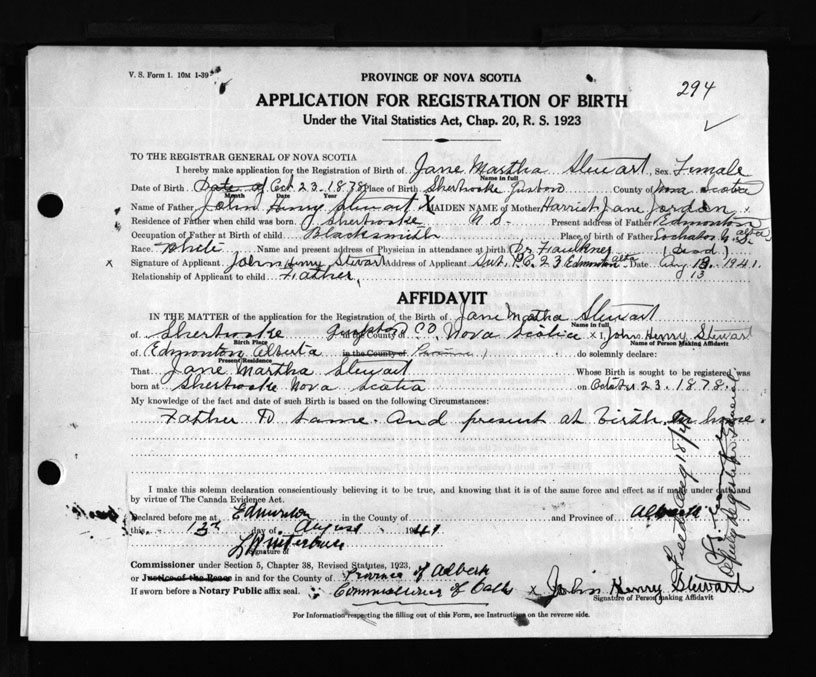 V. S. Form 1. 10M 1-39
PROVINCE OF NOVA SCOTIA
294
APPLICATION FOR REGISTRATION OF BIRTH
Under the Vital Statistics Act, Chap. 20, R. S. 1923
TO THE REGISTRAR GENERAL OF NOVA SCOTIA
I hereby make application for the Registration of Birth of Jane Martha Stewart Sex Female
Name in full
Date of Birth Oct 23. 1878 Place of Birth Sherbrooke County of Nova Scotia
Month Date Year
Name of Father John Henry Stewart X MAIDEN NAME of Mother Harriet Jane Jordan x
Residence of Father when child was born Sherbrooke N.S. Present address of Father Edmonton Alta
Occupation of Father at Birth of child Blacksmith Place of birth of Father N.S.
Race. White Name and present address of Physician in attendance at birth Dr Faulkner (Dead)
x Signature of Applicant John Henry Stewart Address of Applicant P.O. 23 Edmonton Alta Date Aug 13 1941.
13
Relationship of Applicant to child Father
AFFIDAVIT
IN THE MATTER of the application for the Registration of the Birth of Jane Martha Stewart
Name in full
of Sherbrooke in the County of CO. Nova Scotia x I, John Henry Stewart
Birth Place Name of Person Making Affidavit
of Edmonton Alberta in the County of Province ) do solemnly declare:
Present Residence
That Jane Martha Stewart Whose Birth is sought to be registered was
born at Sherbrooke Nova Scotia on October 23. 1878.
My knowledge of the fact and date of such Birth is based on the following Circumstances:
Father To same. And present at Birth. in house.
I make this solemn declaration conscientiously believing it to be true, and knowing that it is of the same force and effect as if made under oath and
by virtue of The Canada Evidence Act.
Declared before me at Edmonton in the County of and Province of Alberta
this 13th day of August 1941
Signature of
Commissioner under Section 5, Chapter 38, Revised Statutes, 1923,
or Justice of the Peace in and for the County of Province of Alberta
If sworn before a Notary Public affix seal. Commissioner of Oaths x John Henry Stewart
Signature of Person making Affidavit
For Information respecting the filling out of this Form, see Instructions on the reverse side.
Filed Aug 18/41
Deputy Registrar General